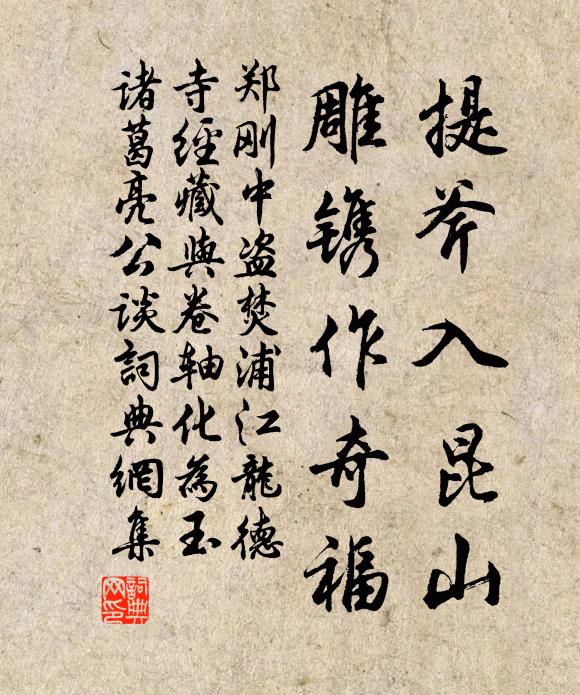 提斧入昆山
雕镌作奇福
郑刚中盗焚浦江龍德
寺經藏與卷轴化為玉
诸葛亮公谈詞典網集
詞典